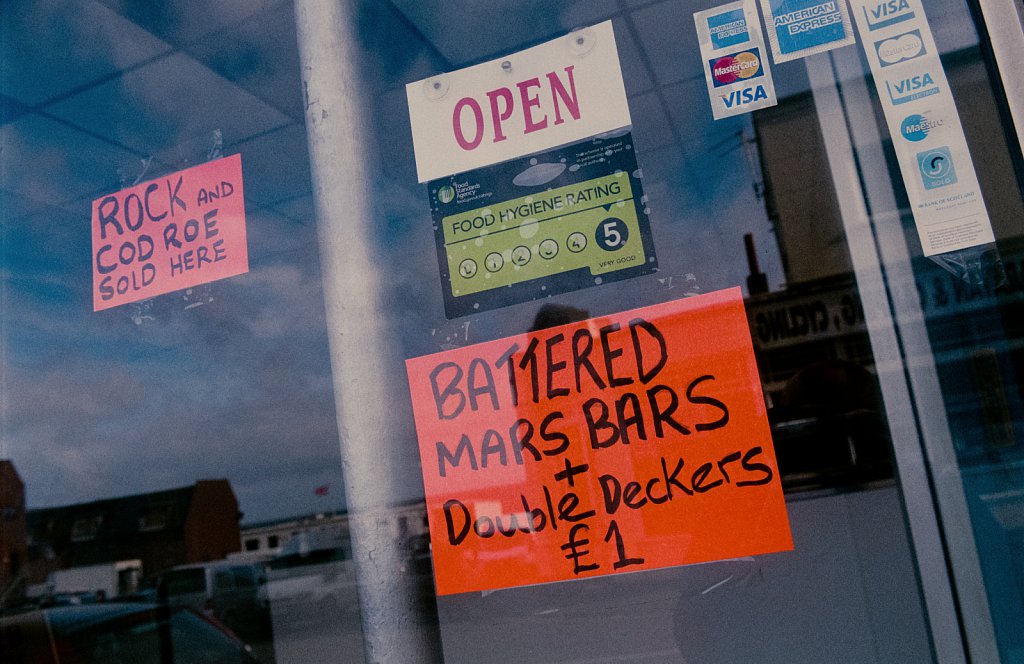 ROCK AND
COD ROE
SOLD HERE
OPEN
Food
Standards
Agency
FOOD HYGIENE RATING
0 1 2 3 4 5
VERY GOOD
BATTERED
MARS BARS
+
Double Deckers
£1
AMERICAN
EXPRESS
MasterCard
VISA
AMERICAN
EXPRESS
VISA
MasterCard
VISA
ELECTRON
Maestro
SOLO
BANK OF SCOTLAND